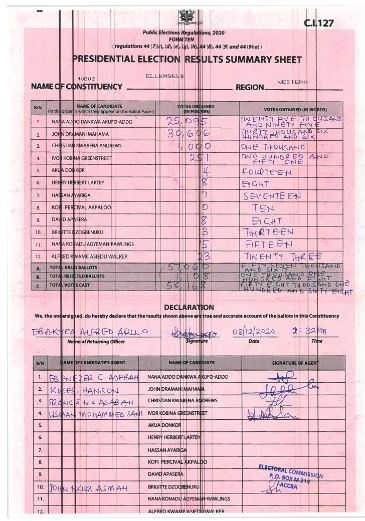 C.I.127
Public Elections Regulations, 2020
FORM TEN
(regulations 44 (7)(c), (d), (e), (g), (h), 44 (8), 44 (9) and 44 (9)(a))
PRESIDENTIAL ELECTION RESULTS SUMMARY SHEET
NAME OF CONSTITUENCY ELLEMBELLE REGION WESTERN
S/N NAME OF CANDIDATE VOTES OBTAINED VOTES OBTAINED (IN WORDS)
(In the order in which they appear on the Ballot Paper) (IN FIGURES)
1. NANA ADDO DANKWA AKUFO-ADDO 25,095 TWENTY FIVE THOUSAND AND NINETY FIVE
2. JOHN DRAMANI MAHAMA 30,606 THIRTY THOUSAND SIX HUNDRED AND SIX
3. CHRISTIAN KWABENA ANDREWS 1,000 ONE THOUSAND
4. IVOR KOBINA GREENSTREET 251 TWO HUNDRED AND FIFTY ONE
5. AKUA DONKOR FOURTEEN
6. HENRY HERBERT LARTEY 8 EIGHT
7. HASSAN AYARIGA SEVENTEEN
8. KOFI PERCIVAL AKPALOO TEN
9. DAVID APASERA 8 EIGHT
10. BRIGITTE DZOGBENUKU THIRTEEN
11. NANA KONADU AGYEMAN-RAWLINGS FIFTEEN
12. ALFRED KWAME ASIEDU WALKER 23 TWENTY THREE
A. TOTAL VALID BALLOTS
B. TOTAL REJECTED BALLOTS
C. TOTAL VOTES CAST 58,168 FIFTY EIGHT THOUSAND ONE HUNDRED AND SIXTY EIGHT
DECLARATION
We, the undersigned, do hereby declare that the results shown above are true and accurate account of the ballots in this Constituency
ALFRED 08/12/2020
Name of Returning Officer Signature Date Time
S/N NAME OF CANDIDATE'S AGENT NAME OF CANDIDATE SIGNATURE OF AGENT
1. NANA ADDO DANKWA AKUFO-ADDO
2. JOHN DRAMANI MAHAMA
3. CHRISTIAN KWABENA ANDREWS
4. USMAN MOHAMMED SANI IVOR KOBINA GREENSTREET
5. AKUA DONKOR
6. HENRY HERBERT LARTEY
7. HASSAN AYARIGA
8. KOFI PERCIVAL AKPALOO
9. DAVID APASERA
10. BRIGITTE DZOGBENUKU
11. NANA KONADU AGYEMAN-RAWLINGS
12. ALFRED KWAME ASIEDU WALKER
ELECTORAL COMMISSION
P.O. BOX M 214
ACCRA